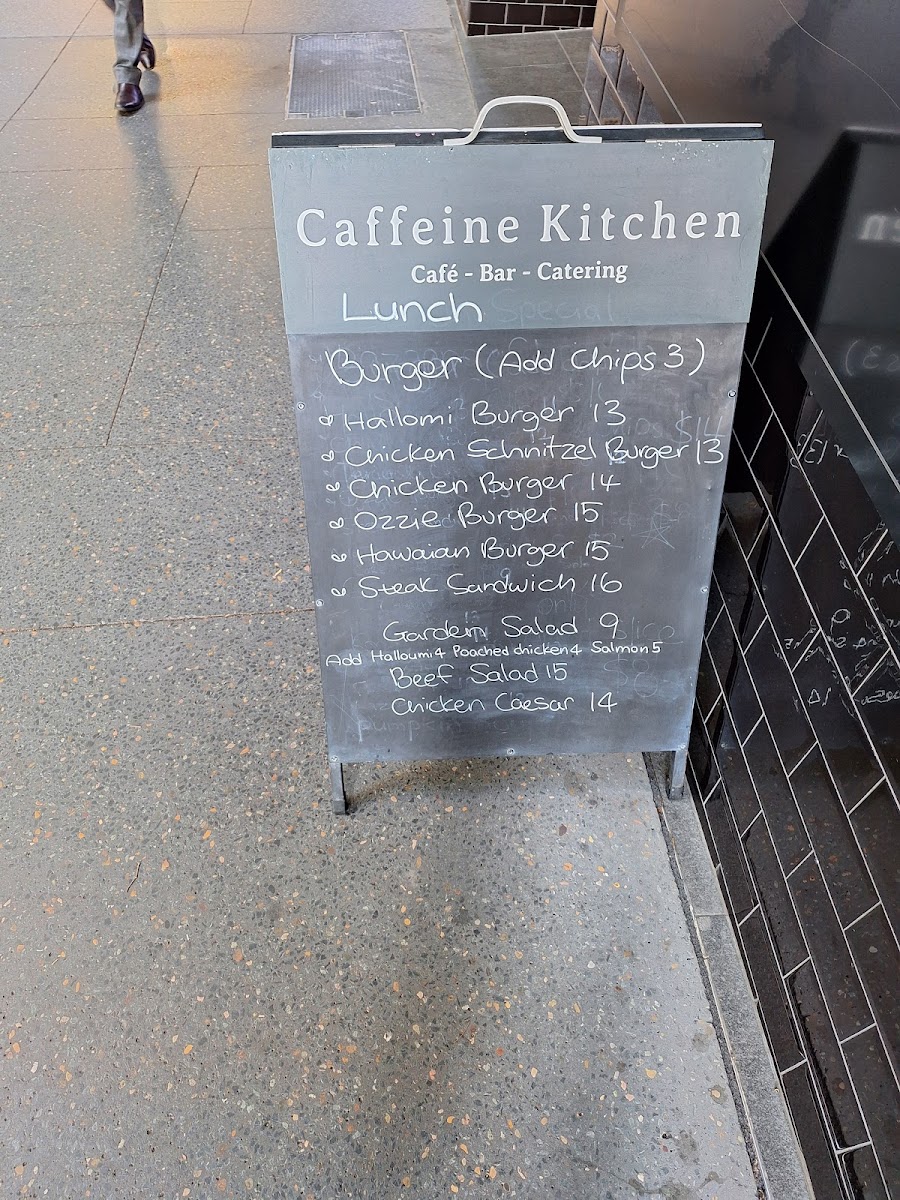 Caffeine Kitchen
Café - Bar - Catering
Lunch Special
Burger (Add Chips 3)
Hallomi Burger 13
Chicken Schnitzel Burger 13
Chicken Burger 14
Ozzie Burger 15
Hawaian Burger 15
Steak Sandwich 16
Garden Salad 9
Add Halloumi 4 Poached chicken 4 Salmon 5
Beef Salad 15
Chicken Caesar 14